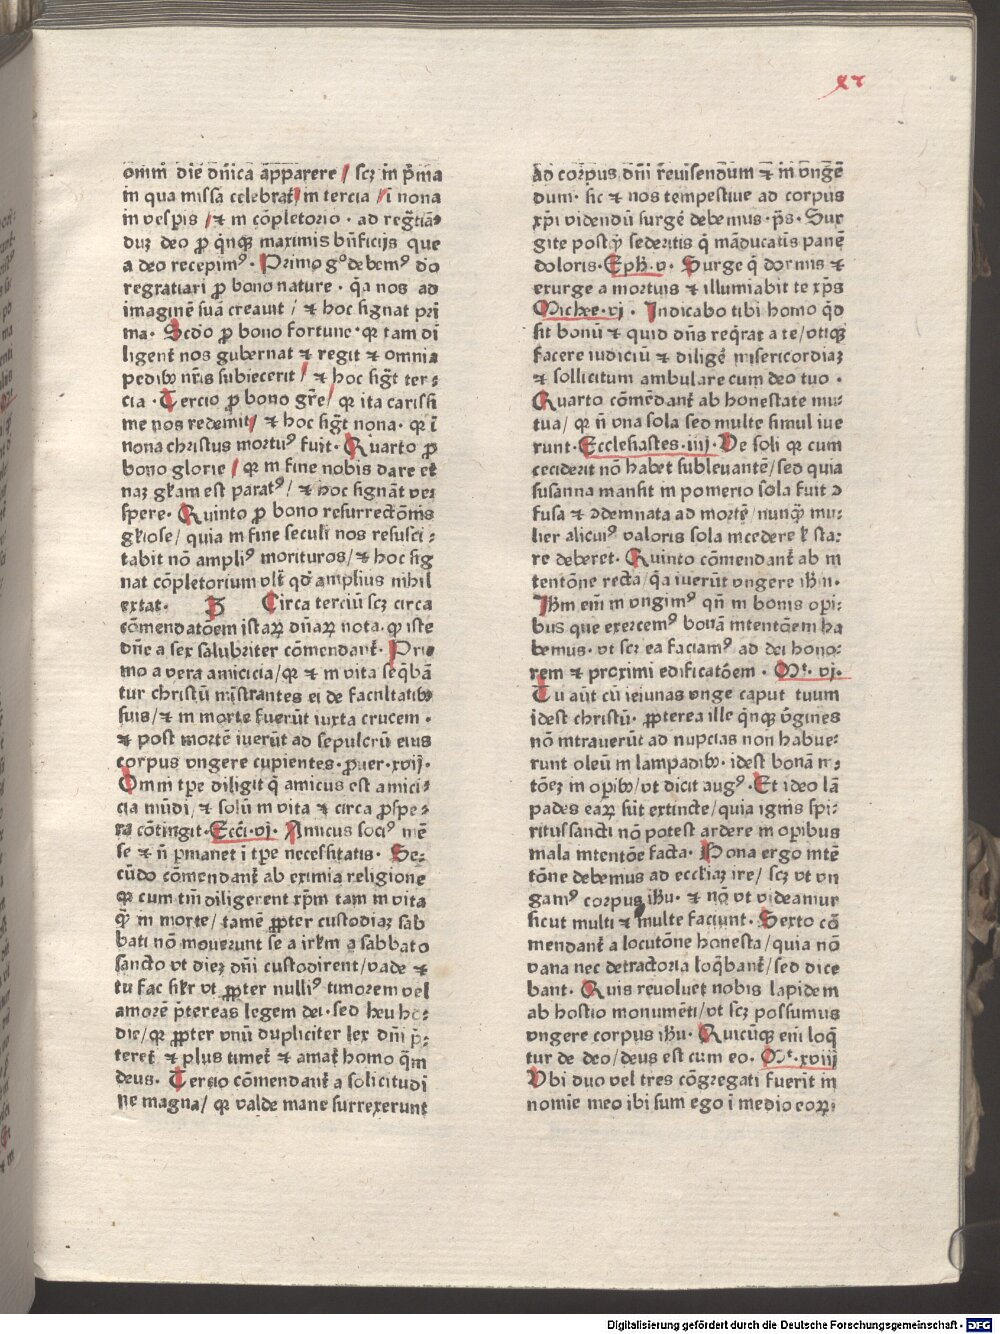 xv
omni die dñica apparere / scꝫ in p̃ma
in qua missa celebrat̃ / in tercia / ĩ nona
in vesp̃is / ⁊ in cõpletorio · ad reg̃tiãꝰ
duꝫ deo ꝓ q̃nqꝫ maximis bñficijs que
a deo recepimꝰ · Primo gͦ debemꝰ dõ
regratiari ꝓ bono nature · q̃a nos ad
imaginẽ suã creauit / ⁊ hoc signat pri
ma · Scd̃o ꝓ bono fortune · qꝛ tam di
ligent̃ nos gubernat ⁊ regit ⁊ omnia
pedibꝫ nr̃is subiecerit / ⁊ hoc sig̃t ter⸗
cia · Tercio ꝓ bono gr̃e / qꝛ ita carissi
me nos redemit / ⁊ hoc sig̃t nona · qꝛ ĩ
nona christus mortuꝰ fuit · Quarto ꝓ
bono glorie / qꝛ in fine nobis dare et̃
naꝫ gl̃iam est paratꝰ / ⁊ hoc signãt ves
spere · Quinto ꝓ bono resurrectõnis
gl̃iose / quia in fine seculi nos resusci⸗
tabit nõ ampliꝰ morituros / ⁊ hoc sig
nat cõpletorium vlt̃ qd̃ amplius nihil
extat · B Circa terciũ scꝫ circa
cõmendatõem istaꝝ dñaꝝ nota · qꝛ iste
dñe a sex salubriter cõmendant̃ · Pri⸗
mo a vera amicicia / qꝛ ⁊ in vita seq̃bã
tur christũ mĩstrantes ei de facultatibꝫ
suis / ⁊ in morte fuerũt iuxta crucem ·
⁊ post mortẽ iuerũt ad sepulcrũ eius
corpus vngere cupientes · ꝓuer · xvij ·
Omni tp̃e diligit q̃ amicus est amici⸗
cia mũdi / ⁊ solũ in vita ⁊ circa ꝓspe⸗
ra cõtingit · Ecci · vj · Amicus sociꝰ mẽ
se ⁊ ñ p̱manet ĩ tp̃e necessitatis · Se⸗
cũdo cõmendant̃ ab eximia religione
qꝛ cum tm̃ diligerent xp̃m tam in vita
q̃ in morte / tamẽ ꝓpter custodiaꝫ sab
bati nõ mouerunt se a irl̃m a sabbato
sancto vt dieꝫ dñi custodirent / vade ⁊
tu fac sil̃r vt ꝓpter nulliꝰ timorem vel
amorẽ p̃tereas legem dei · sed heu ho⸗
die / qꝛ ꝓpter vnũ dupliciter lex dñi p̃⸗
teret̃ ⁊ plus timet̃ ⁊ amat̃ homo q̃m
deus · Tercio cõmendant̃ a solicitudi
ne magna / qꝛ valde mane surrexerunt
ad corpus dñi reuisendum ⁊ in vngẽ
dum · sic ⁊ nos tempestiue ad corpus
xp̃i videndũ surge debemus · ps̃ · Sur
gite postq̃ sederitis q̃ mãducatis panẽ
doloris · Eph̃ · v · Surge q̃ dormis ⁊
exurge a mortuis ⁊ illumiabit te xp̃s
Michee · vj · Indicabo tibi homo q̃d
sit bonũ ⁊ quid dñs req̃rat a te / vtiqꝫ
facere iudiciũ ⁊ diligẽ misericordiaꝫ
⁊ sollicitum ambulare cum deo tuo ·
Quarto cõmẽdant̃ ab honestate mu⸗
tua / qꝛ ñ vna sola sed multe simul iue
runt · Ecclesiastes · iiij · Ve soli qꝛ cum
ceciderit nõ habet subleuantẽ / sed quia
susanna mansit in pomerio sola fuit ꝯ
fusa ⁊ ꝯdemnata ad mortẽ / nunq̃ mu⸗
lier alicuiꝰ valoris sola incedere l̃ sta⸗
re deberet · Quinto cõmendant̃ ab in
tentõne recta / q̃a iuerũt vngere ih̃m ·
Ih̃m em̃ in vngimꝰ qñ in bonis opi⸗
bus que exercemꝰ bonã intentõem ha
bemus · vt scꝫ ea faciamꝰ ad dei hono⸗
rem ⁊ proximi edificatõem · Mt · vj ·
Tu aũt cũ ieiunas vnge caput tuum
idest christũ · ꝓpterea ille q̃nqꝫ v̓gines
nõ intrauerũt ad nupcias non habue⸗
runt oleũ in lampadibꝫ · idest bonã in⸗
tõeꝫ in opibꝫ / vt dicit augꝰ · Et ideo lã
pades eaꝝ sũt extincte / quia ignis spi⸗
ritussancti nõ potest ardere in op̱ibus
mala intentõe facta · Bona ergo intẽ
tõne debemus ad eccl̃iaꝫ ire / scꝫ vt vn
gamꝰ corpus ih̃u · ⁊ nõ vt videamur
sicut multi ⁊ multe faciunt · Sexto cõ
mendant̃ a locutõne honesta / quia nõ
vana nec detractoria loq̃bant̃ / sed dice
bant · Quis reuoluet nobis lapidem
ab hostio monumẽti / vt scꝫ possumus
vngere corpus ih̃u · Quicũqꝫ em̃ loq̃
tur de deo / deus est cum eo · Mt · xviij
Vbi duo vel tres cõgregati fuerĩt in
nomĩe meo ibi sum ego ĩ medio eoꝝ⸗
Digitalisierung gefördert durch die Deutsche Forschungsgemeinschaft - DFG